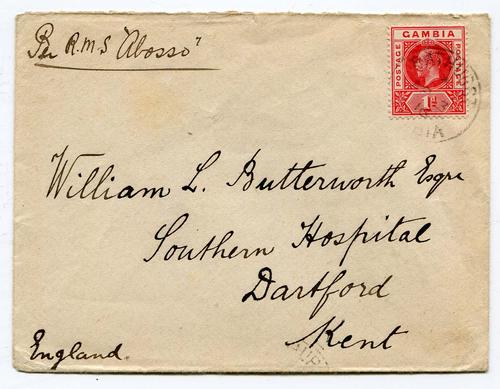 Per R.M.S "Abosso"
GAMBIA
POSTAGE POSTAGE
1D
William L. Butterworth Esqre
Southern Hospital
Dartford
Kent
England.